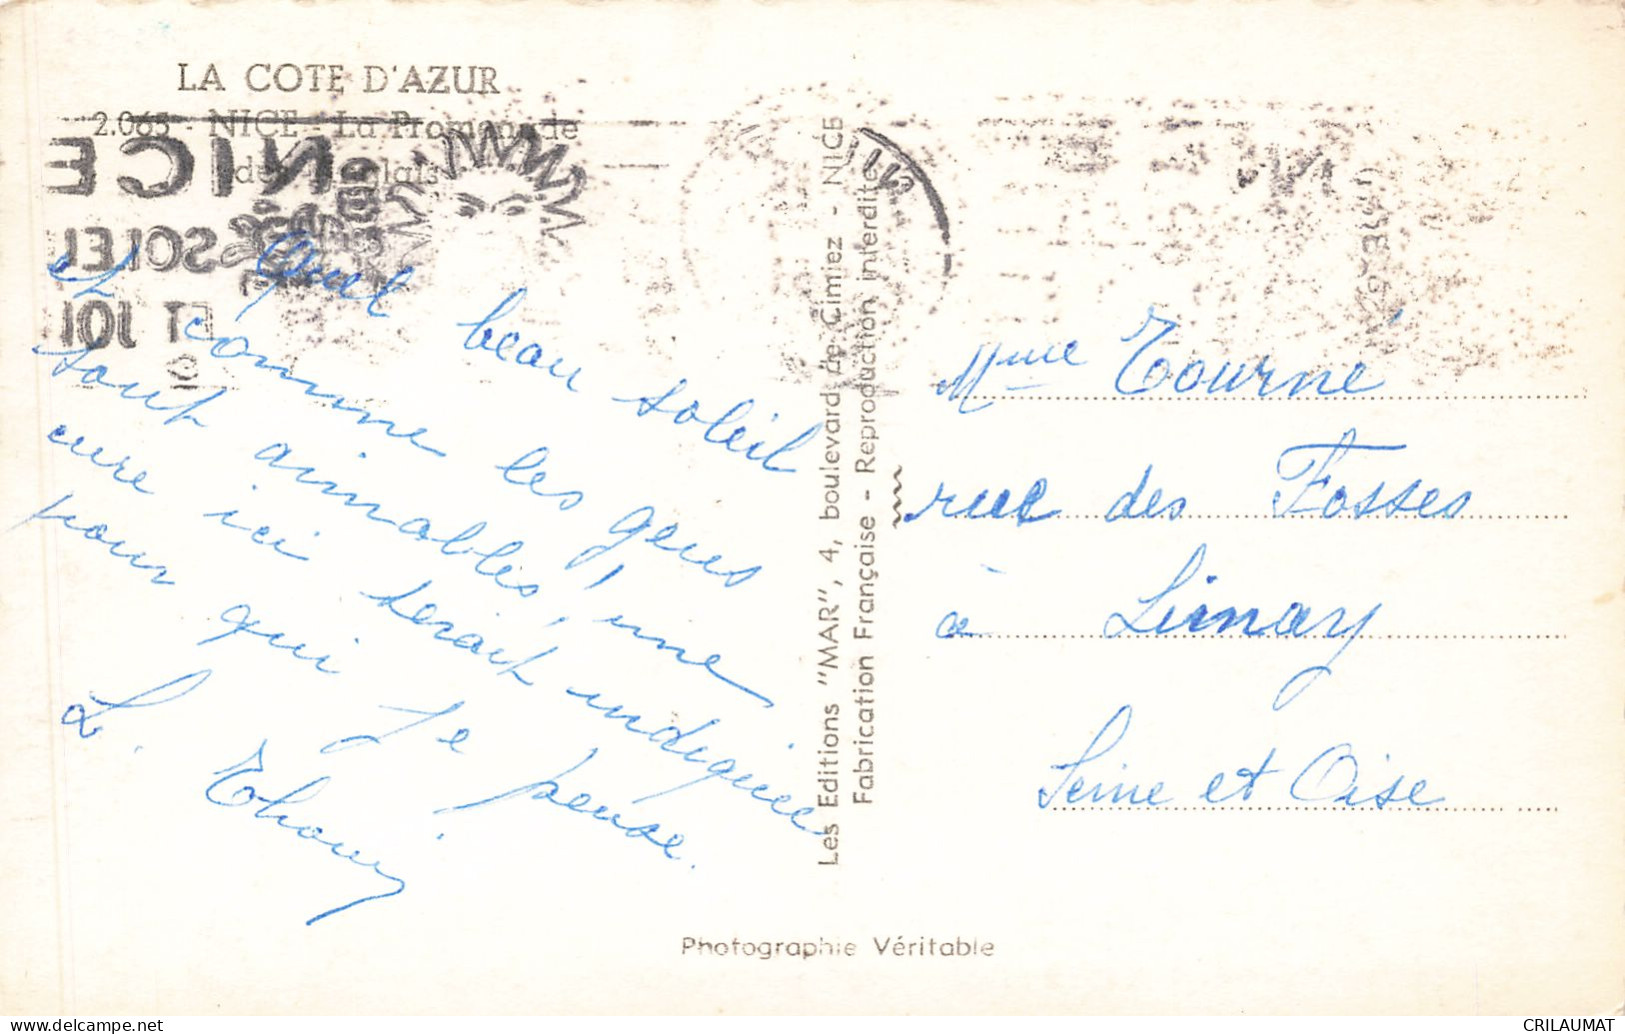 LA COTE D'AZUR
2.065 - NICE - La Promenade
des Anglais
NICE
SOLEI
ET
Quel beau soleil
et comme les gens
sont aimables, une
cure ici serait indiquée
pour qui Je pense.
L. Thouiy
Les Editions "MAR", 4, boulevard de Cimiez - NICE
Fabrication Française - Reproduction interdite
Mme Tourné
rue des Fosses
à Limay
Seine et Oise
Photographie Véritable
CRILAUMAT